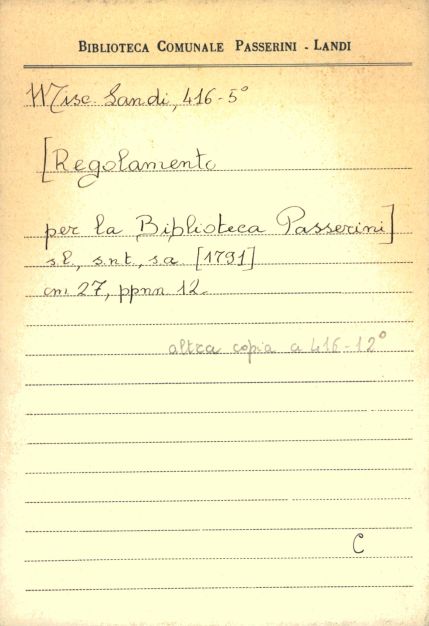 BIBLIOTECA COMUNALE PASSERINI - LANDI
Misc. Landi, 416-5°
[Regolamento
per la Biblioteca Passerini]
s.l., s.n.t., s.a. [1791]
cm. 27, ppnn 12.
altra copia a 416-12°
C